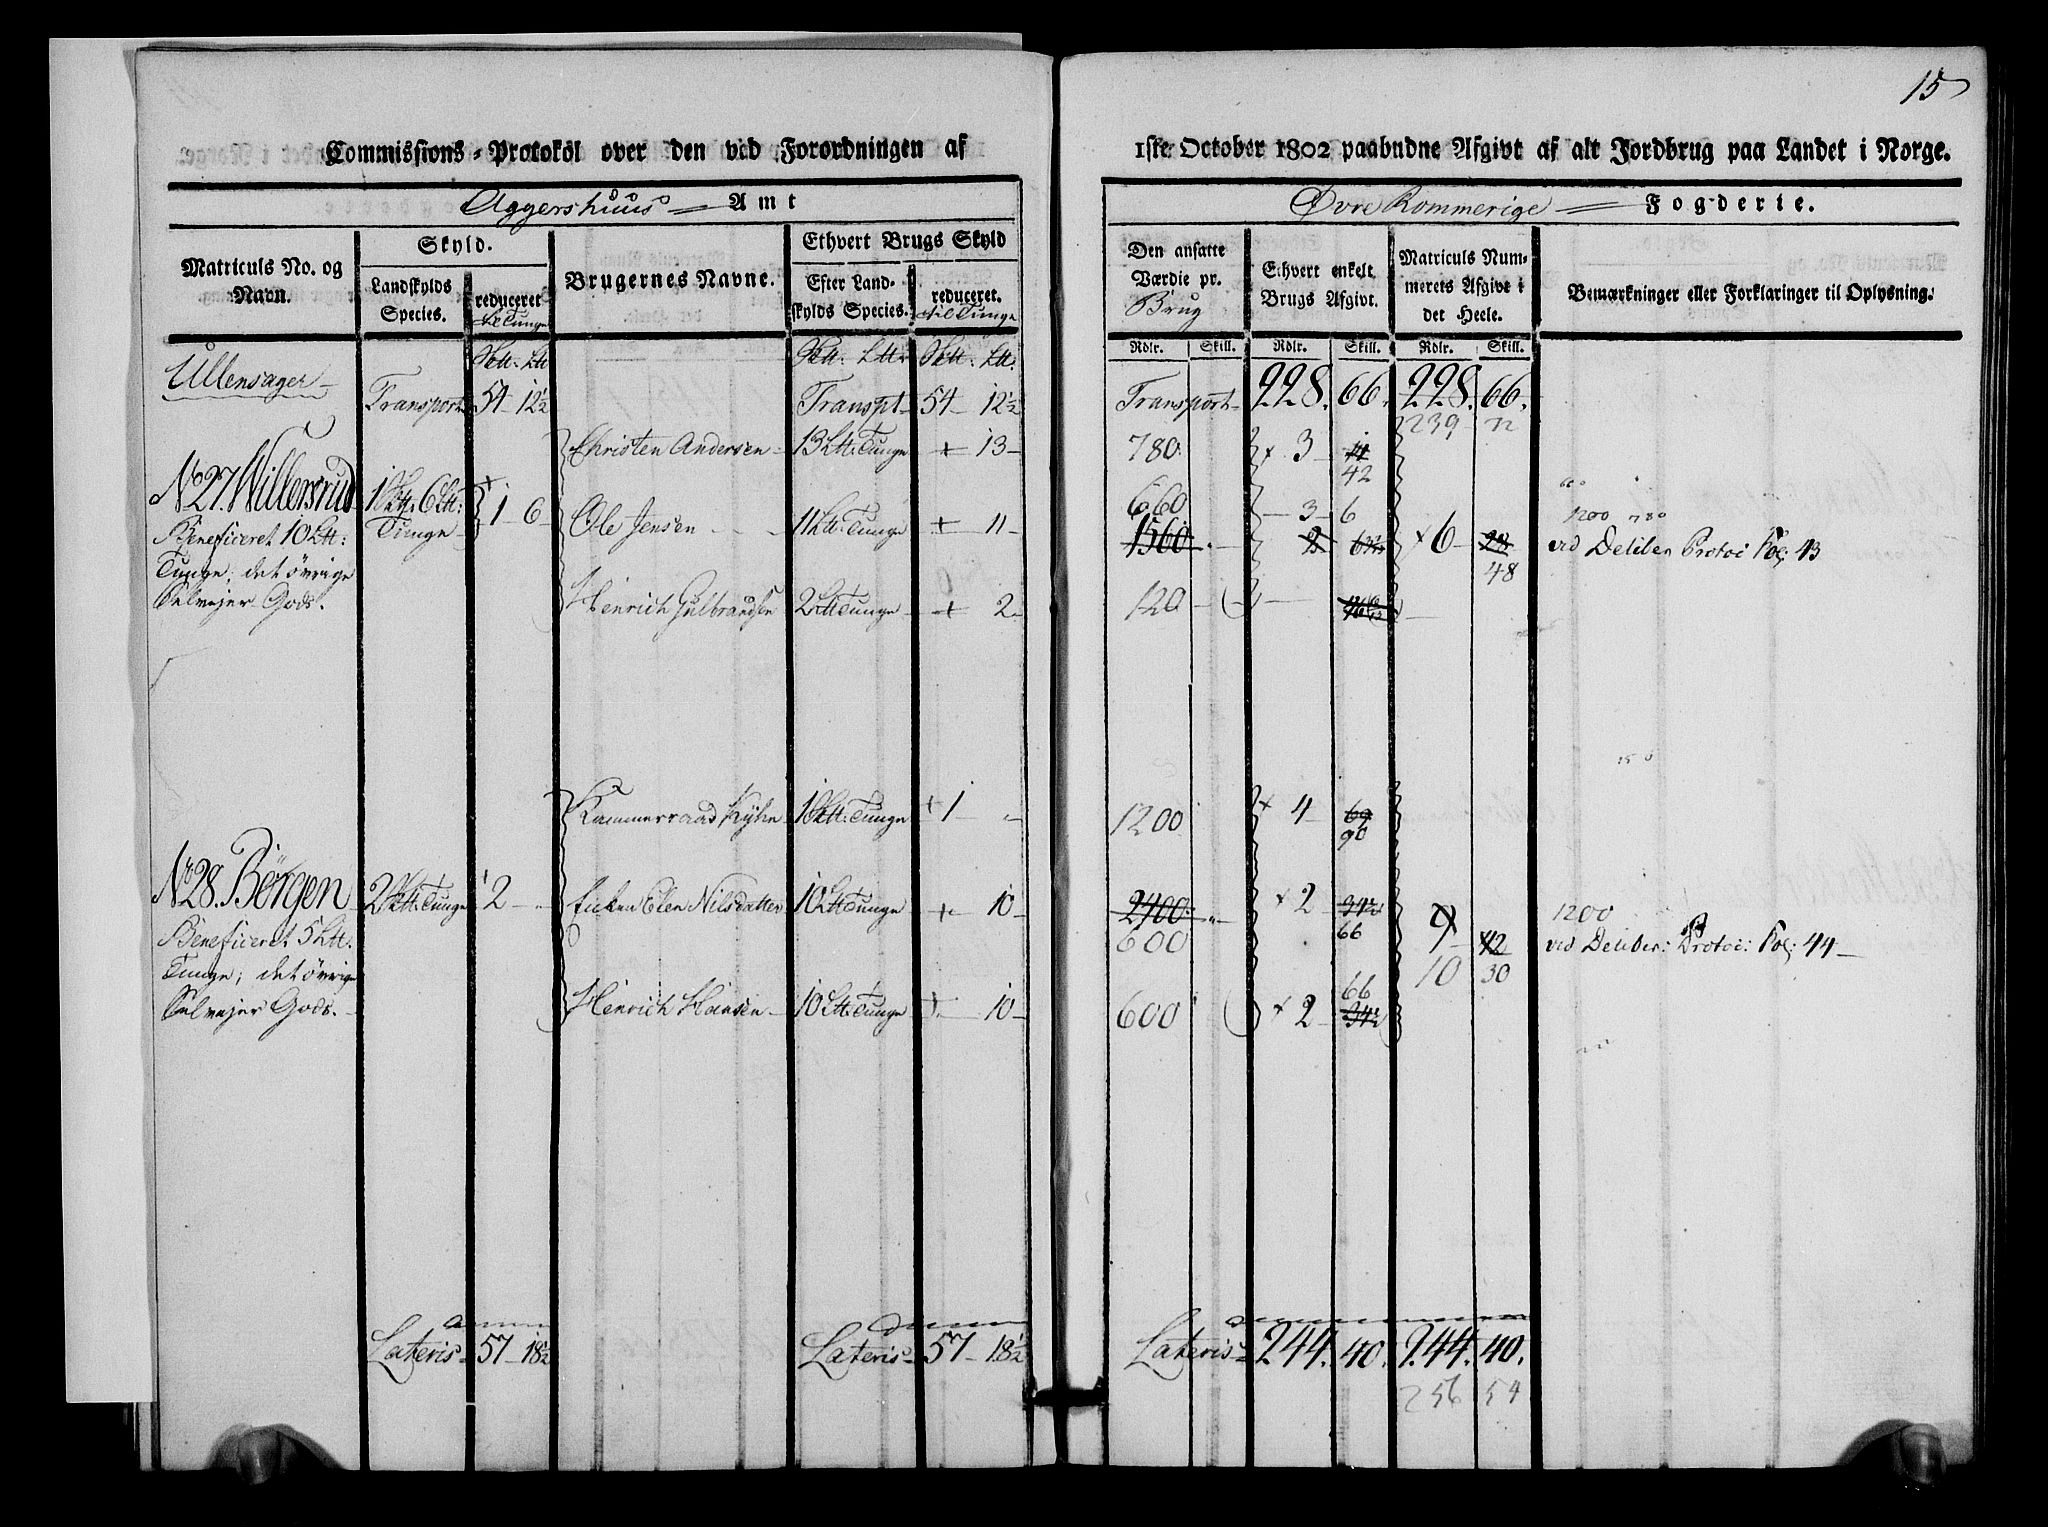 15
Commissions-Protokol over den ved Forordningen af
1ste October 1802 paabudne Afgivt af alt Jordbrug paa Landet i Norge.
Aggershuus Amt
Øvre Rommerige Fogderie.
Matriculs No. og Navn.
Skyld.
Landskylds Species.
reduceret til Tunge
Brugernes Navne.
Ethvert Brugs Skyld
Efter Landskylds Species.
reduceret. til Tunge
Den ansatte Værdie pr. Brug
Ethvert enkelt Brugs Afgivt.
Matriculs Nummerets Afgivt i det Heele.
Bemærkninger eller Forklaringer til Oplysning.
Rdlr. Skill. Rdlr. Skill. Rdlr. Skill.
Ullensager
Transport 54 12½ Transpt 54 12½ Transport 228. 66. 228. 66.
239 72
Christen Andersen 13 Ltt: Tunge + 13 780 × 3 42
No 27. Willersrud 1 6 Ltt: Tunge 1 6
660 1200 780
Ole Jensen 11 Ltt: Tunge + 11 1560 3 6 × 6 48 vid Deliber Protoc Fol: 43
Beneficeret 10 Ltt:
Tunge; det øvrige
Selvejer Gods.
Henrich Gulbrandsen 2 Ltt Tunge + 2 120
150
Kammerraad Kyhn 1 Tunge + 1 1200 × 4 69
90
No 28. Børgen 2 Tunge 2
Enken Elen Nilsdatter 10 Ltt Tunge + 10 2400 × 2 34½ 9 42 1200
600 66 10 30 vid Deliber: Protoc: Fol: 44
Beneficeret 5 Ltt:
Tunge; det øvrige
Selvejer Gods.
Henrich Hansen 10 Ltt: Tunge + 10 600 × 2 66 34½
Lateris 57 18½ Lateris 57 18½ Lateris 244. 40. 244. 40.
256 54